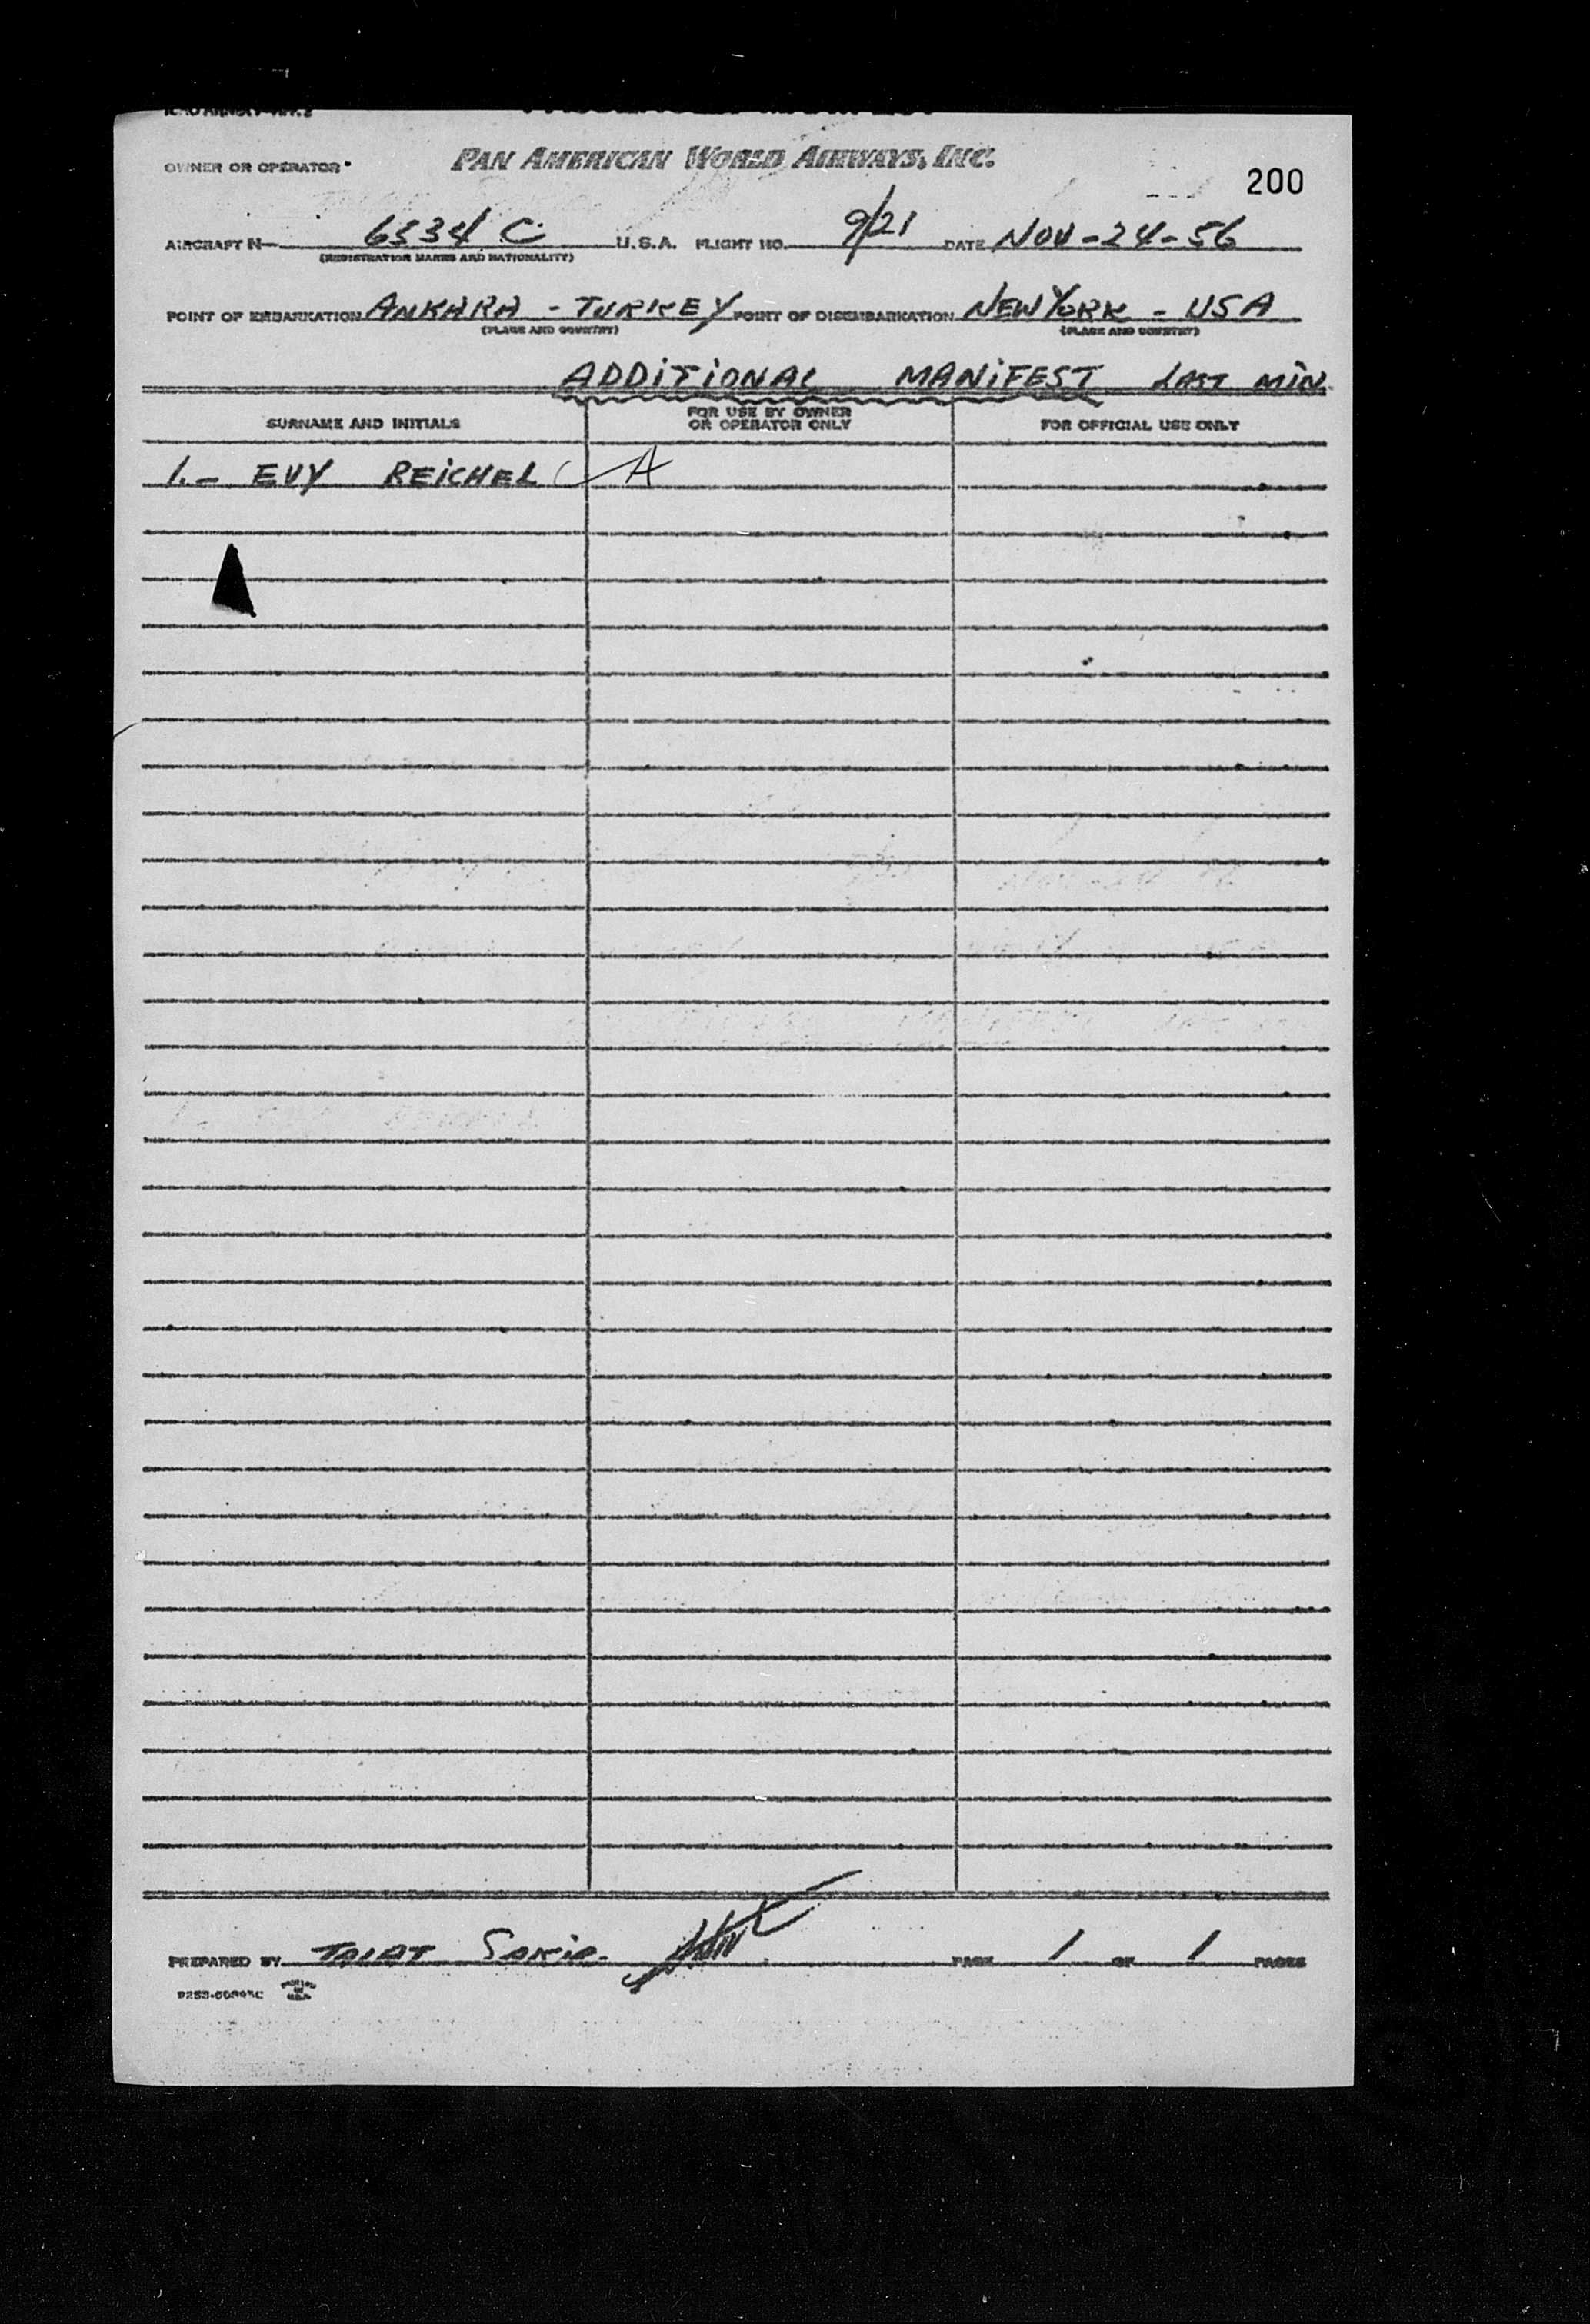 OWNER OR OPERATOR PAN AMERICAN WORLD AIRWAYS, INC.
200
AIRCRAFT N— 6534 C U.S.A. FLIGHT NO. 9/21 DATE NOV-24-56
(REGISTRATION MARKS AND NATIONALITY)
POINT OF EMBARKATION ANKARA - TURKEY POINT OF DISEMBARKATION NEW YORK - USA
(PLACE AND COUNTRY) (PLACE AND COUNTRY)
ADDITIONAL MANIFEST LAST MIN.
SURNAME AND INITIALS FOR USE BY OWNER OR OPERATOR ONLY FOR OFFICIAL USE ONLY
1.- EVY REICHEL A
PREPARED BY TALAT SAKIR PAGE 1 OF 1 PAGES
PRINTED IN U.S.A.